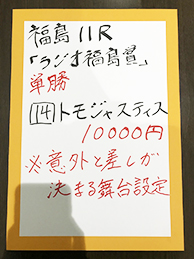 福島11R
「ラジオ福島賞」
単勝
14トモジャスティス
10000円
※意外と差しが
決まる舞台設定